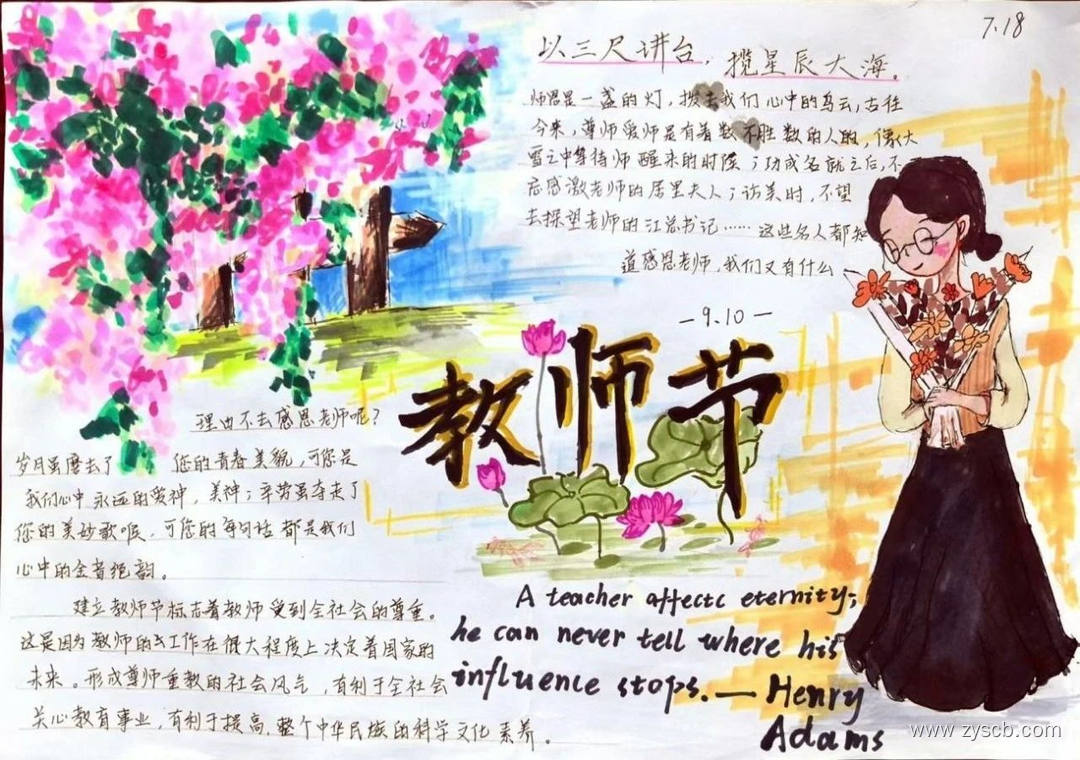 7.18
以三尺讲台,揽星辰大海。
师恩是一盏的灯,拨去我们心中的乌云,古往
今来,尊师爱师是有着数不胜数的人的,像大
雪之中等待师醒来的时候;功成名就之后,不
忘感激老师的居里夫人;访美时,不望
去探望老师的江总书记……这些名人都知
道感恩老师,我们又有什么
—9.10—
教师节
理由不去感恩老师呢?
岁月虽磨去了 您的青春美貌,可您是
我们心中永远的爱神,美神;辛劳虽夺走了
您的美妙歌喉,可您的每句话都是我们
心中的金音绝韵。
建立教师节标志着教师受到全社会的尊重。
这是因为教师的工作在很大程度上决定着国家的
未来。形成尊师重教的社会风气,有利于全社会
关心教育事业,有利于提高整个中华民族的科学文化素养。
A teacher affectc eternity;
he can never tell where his
influence stops.— Henry
Adams
www.zyscb.com